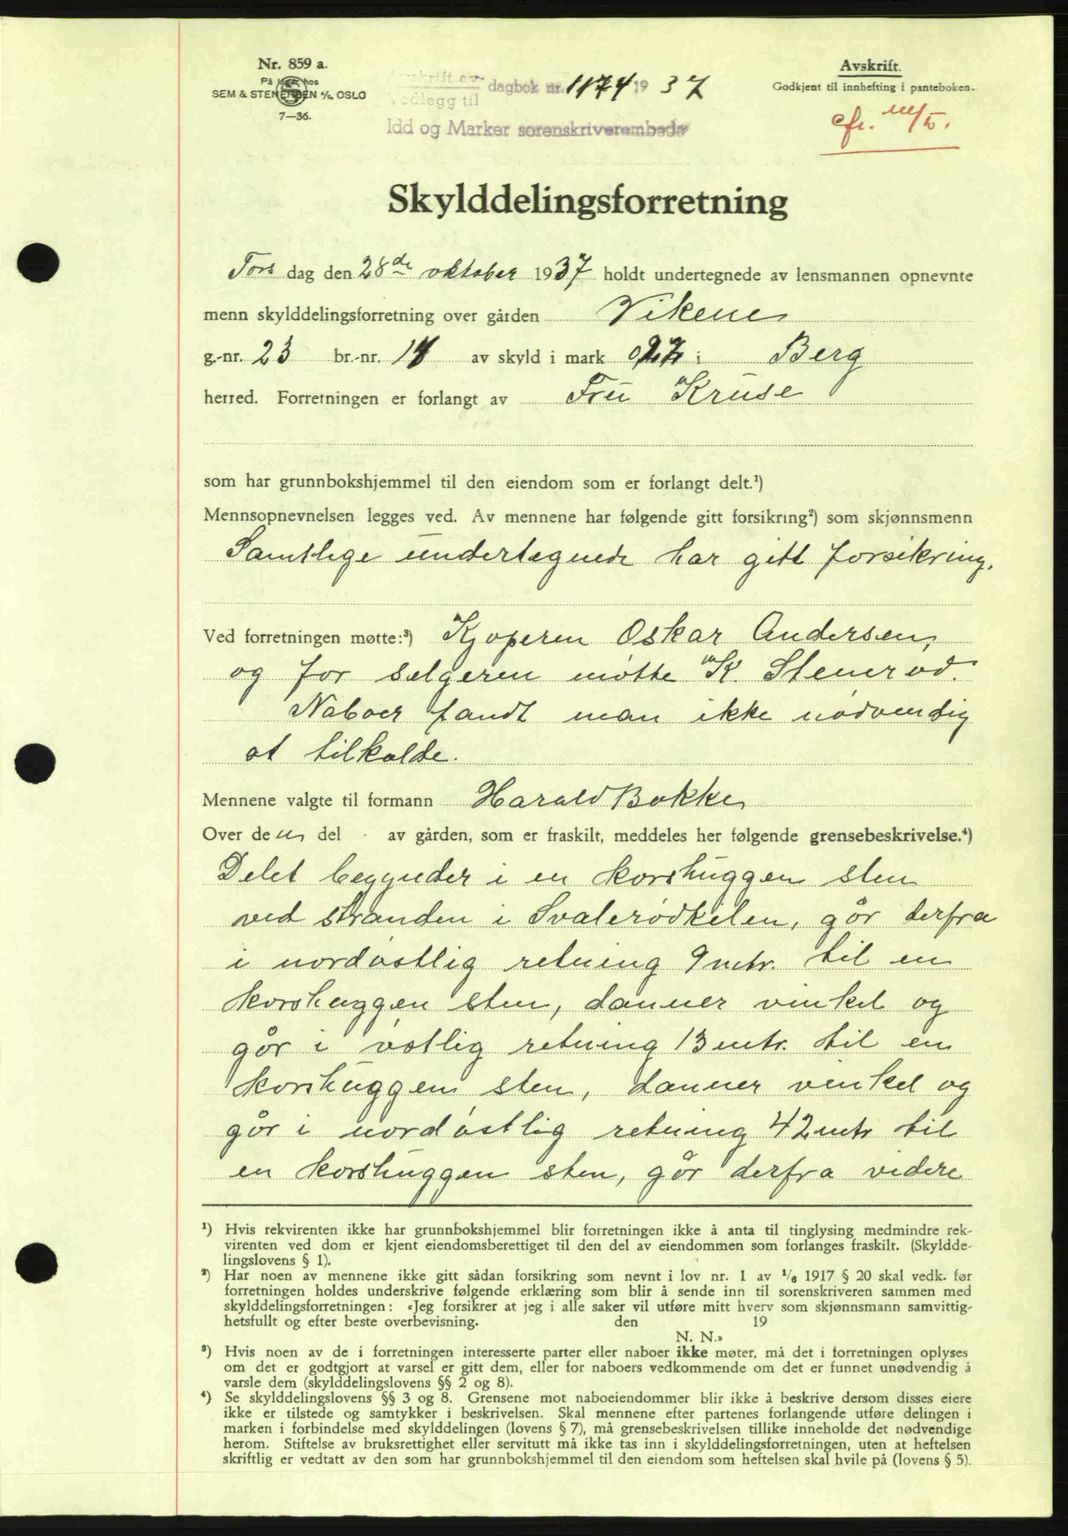 Nr. 859 a.
På lager hos
SEM & STENERSEN A/S, OSLO
7—36.
Avskrift av
Vedlegg til
dagbok nr. 1174 1937
Idd og Marker sorenskriverembede
Avskrift.
Godkjent til innhefting i panteboken.
cfr.
Skylddelingsforretning
Tors dag den 28de oktober 1937 holdt undertegnede av lensmannen opnevnte
menn skylddelingsforretning over gården Vikene
g.-nr. 23 br.-nr. av skyld i mark i Berg
herred. Forretningen er forlangt av Fru Kruse
som har grunnbokshjemmel til den eiendom som er forlangt delt.¹)
Mennsopnevnelsen legges ved. Av mennene har følgende gitt forsikring²) som skjønnsmenn
Samtlige undertegnede har gitt forsikring.
Ved forretningen møtte:³) Kjøperen Oskar Andersen,
og for selgeren møtte K. Stenerød.
Naboer fandt man ikke nødvendig
at tilkalde.
Mennene valgte til formann Harald Bakke
Over den del av gården, som er fraskilt, meddeles her følgende grensebeskrivelse.⁴)
Delet begynder i en korshuggen sten
ved stranden i Svalerødkilen, går derfra
i nordøstlig retning 9 mtr. til en
korshuggen sten, danner vinkel og
går i østlig retning 13 mtr. til en
korshuggen sten, danner vinkel og
går i nordøstlig retning 42 mtr til
en korshuggen sten, går derfra videre
¹) Hvis rekvirenten ikke har grunnbokshjemmel blir forretningen ikke å anta til tinglysing medmindre rek-
virenten ved dom er kjent eiendomsberettiget til den del av eiendommen som forlanges fraskilt. (Skyldde-
lingslovens § 1).
²) Har noen av mennene ikke gitt sådan forsikring som nevnt i lov nr. 1 av 1/6 1917 § 20 skal vedk. før
forretningen holdes underskrive følgende erklæring som blir å sende inn til sorenskriveren sammen med
skylddelingsforretningen: «Jeg forsikrer at jeg i alle saker vil utføre mitt hverv som skjønnsmann samvittig-
hetsfullt og efter beste overbevisning. den 19
N. N.»
³) Hvis noen av de i forretningen interesserte parter eller naboer ikke møter, må det i forretningen oplyses
om det er godtgjort at varsel er gitt dem, eller for naboers vedkommende om det er funnet unødvendig å
varsle dem (skylddelingslovens §§ 2 og 8).
⁴) Se skylddelingslovens §§ 3 og 8. Grensene mot naboeiendommer blir ikke å beskrive dersom disses eiere
ikke er tilstede og samtykker i beskrivelsen. Skal mennene efter partenes forlangende utføre delingen i
marken i forbindelse med skylddelingen (lovens § 7), må grensebeskrivelsen tillike inneholde det nødvendige
herom. Stiftelse av bruksrettighet eller servitutt må ikke tas inn i skylddelingsforretningen, uten at heftelsen
skriftlig er vedtatt av den som har grunnbokshjemmel til den eiendom som heftelsen skal hvile på (lovens § 5).